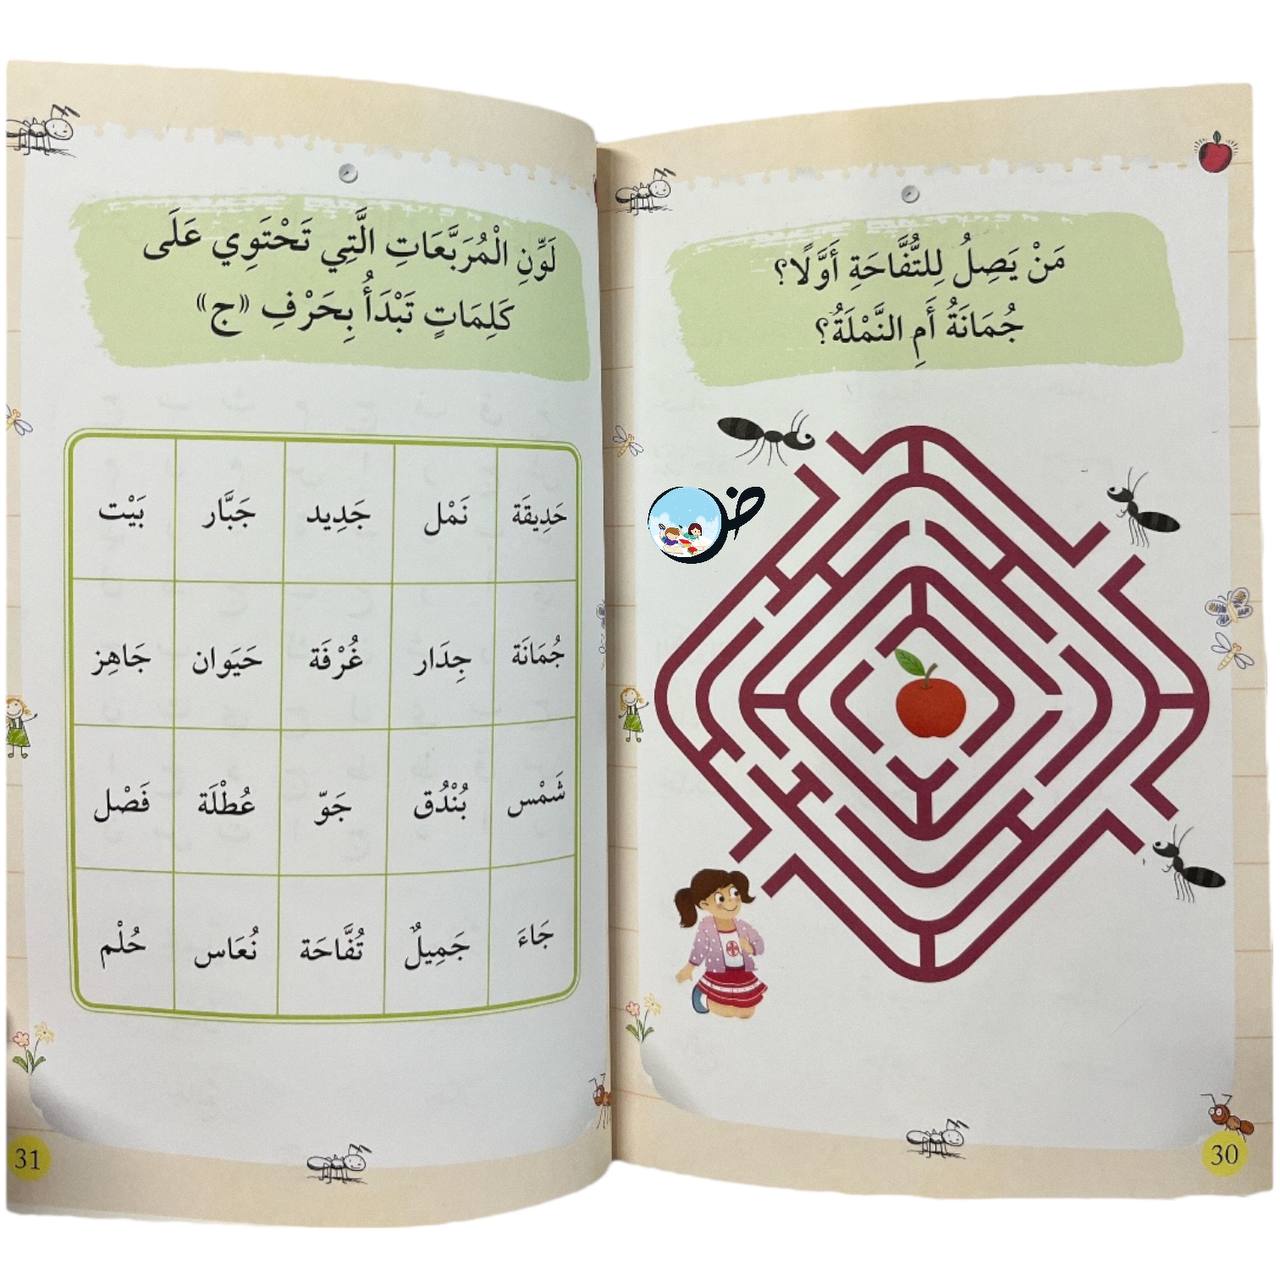 مَنْ يَصِلُ لِلتُّفَّاحَةِ أَوَّلًا؟
جُمَانَةُ أَمِ النَّمْلَةُ؟
ض
30
لَوِّنِ الْمُرَبَّعَاتِ الَّتِي تَحْتَوِي عَلَى
كَلِمَاتٍ تَبْدَأُ بِحَرْفِ «ج»
حَدِيقَة نَمْل جَدِيد جَبَّار بَيْت
جُمَانَة جِدَار غُرْفَة حَيَوان جَاهِز
شَمْس بُنْدُق جَوّ عُطْلَة فَصْل
جَاءَ جَمِيلٌ تُفَّاحَة نُعَاس حُلْم
31